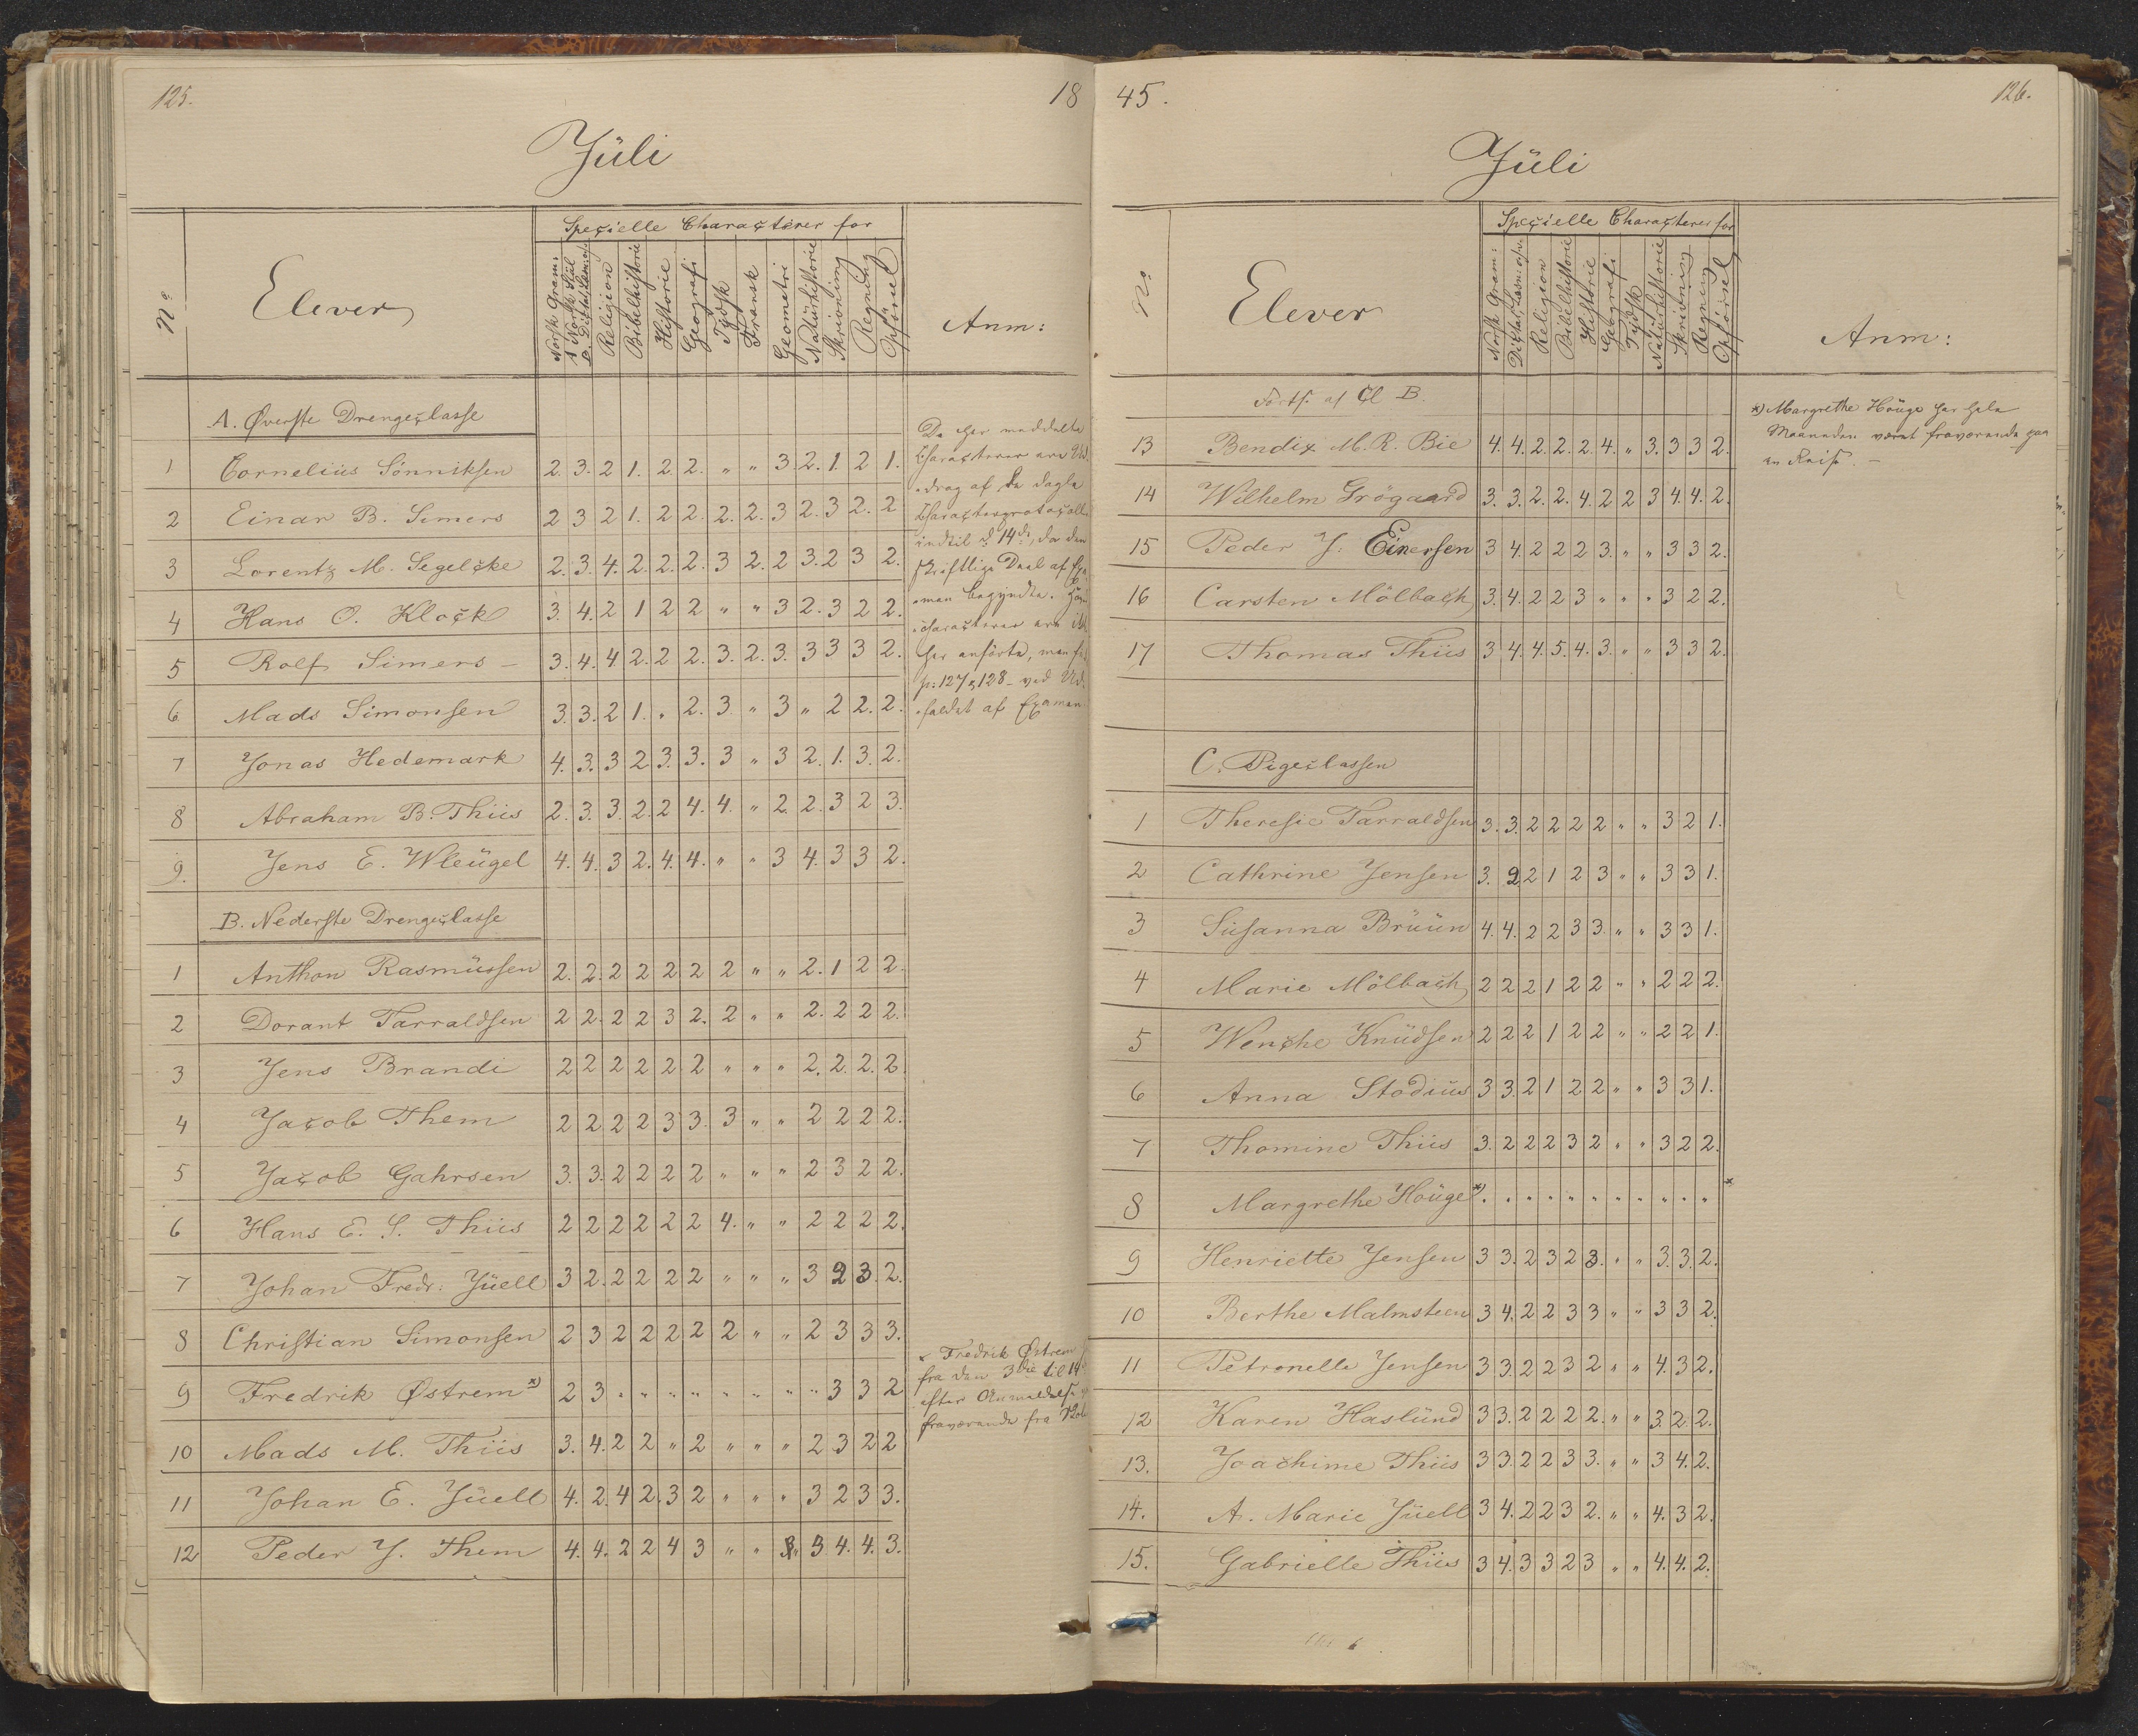 125.
18
Jüli
Specielle Characterer for
No
Elever
Norsk Gram:
A Norsk Stiil
B. Dictat, Læsn: osv
Religion
Bibelhistorie
Historie
Geografi
Tydsk
Fransk
Geometri
Natürhistorie
Skrivning
Regning
Opførsel
Anm:
A. Øverste Drengeclasse
1 Cornelius Sönniksen 2. 3. 2 1. 2 2. " " 3. 2. 1. 2 1.
2 Einar B. Simers 2 3 2 1. 2 2. 2. 2. 3 2. 3 2. 2
3 Lorentz M. Segelcke 2. 3. 4. 2. 2. 2. 3 2. 2 3. 2 3 2.
4 Hans O. Klock 3. 4. 2 1 2 2 " " 3 2. 3 2 2.
5 Rolf Simers – 3. 4. 4 2. 2 2. 3. 2. 3. 3 3 3 2.
6 Mads Simonsen 3. 3. 2 1. " 2. 3 " 3 " 2 2. 2.
7 Jonas Hedemark 4. 3. 3 2 3. 3. 3 " 3 2. 1. 3. 2.
8 Abraham B. Thiis 2. 3. 3. 2. 2 4. 4. " 2. 2. 3 2 3.
9. Jens E. Wleügel 4. 4. 3 2. 4. 4. " " 3 4. 3 3 2.
De her meddelte
Characterer ere Ud-
drag af de dagle
Characterprotocoller
indtil d 14de, da den
skriftlige Deel af Exa-
men begyndte.
characterer ere ik
her anførte, men
p: 127 & 128 – ved Ud-
faldet af Examen
B. Nederste Drengeclasse
1 Anthon Rasmüssen 2. 2. 2 2 2 2 2 " " 2. 1 2 2.
2 Dorant Tarraldsen 2 2. 2 2 3 2. 2 " " 2. 2 2 2.
3 Jens Brandi 2 2 2 2 2 2 " " " 2. 2. 2. 2.
4 Jacob Them 2 2 2 2 3 3. 3 " " 2 2 2 2.
5 Jacob Gahrsen 3. 3. 2 2 2 2 " " " 2 3 2 2.
6 Hans E. S. Thiis 2 2 2 2 2 2 4. " " 2 2 2 2.
7 Johan Fredr. Jüell 3 2. 2 2 2 2 " " " 3 2 3. 2.
8 Christian Simonsen 2 3 2 2 2 2 2 " " 2 3 3 3.
9 Fredrik Østrem *) 2 3 " " " " " " " " 3 3 2
10 Mads M. Thiis 3. 4. 2 2 " 2 " " " 2 3 2 2
11 Johan E. Jüell 4. 2. 4 2. 3 2 " " " 3 2 3 3.
12 Peder J. Them 4. 4. 2 2 4 3 " " " 3 4. 4. 3.
x Fredrik Østrem
fra den 3die til 14
efter Anmeldelse
fraværende fra Skol
45.
126.
Jüli
Specielle Characterer for
No
Elever
Norsk Gram:
Dictat, Læsn: osv
Religion
Bibelhistorie
Historie
Geografi
Tydsk
Natürhistorie
Skrivning
Regning
Opførsel
Anm:
Forts. af Cl B.
13 Bendix M. R. Bie 4. 4. 2. 2. 2. 4. " 3. 3 3 2.
14 Wilhelm Grögaard 3. 3. 2. 2. 4. 2 2 3 4 4. 2.
15 Peder J. Einersen 3 4. 2 2 2 3. " " 3 3 2.
16 Carsten Mölbach 3. 4. 2 2 3 " " " 3 2 2.
17 Thomas Thiis 3 4. 4. 5. 4. 3. " " 3 3 2.
*) Margrethe Höuge har hele
Maaneden været fraværende paa
en Reise. –
C. Pigeclassen
1 Theresie Tarraldsen 3. 3. 2 2 2 2 " " 3 2 1.
2 Cathrine Jensen 3. 2 2 1 2 3 " " 3 3 1.
3 Susanna Brüün 4. 4. 2 2 3 3. " " 3 3 1.
4 Marie Mölbach 2 2 2 1 2 2 " " 2 2 2.
5 Wenche Knüdsen 2 2 2 1 2 2 " " 2 2 1.
6 Anna Stodius 3 3. 2 1 2 2 " " 3 3 1.
7 Thomine Thiis 3. 2 2 2 3 2 " " 3 2 2.
8 Margrethe Höuge *) " " " " " " " " " " " *
9 Henriette Jensen 3 3. 2 3 2 3. " " 3. 3. 2.
10 Berthe Malmsteen 3 4. 2 2 3 3 " " 3 3 2.
11 Petronelle Jensen 3 3. 2 2 3 2 " " 4. 3 2.
12 Karen Haslünd 3 3. 2 2 2 2. " " 3. 2 2.
13. Joachime Thiis 3 3. 2 2 3 3. " " 3 4. 2.
14. A. Marie Jüell 3 4. 2 2 3 2. " " 4. 3 2.
15. Gabrielle Thiis 3 4. 3 3 2 3 " " 4. 4. 2.